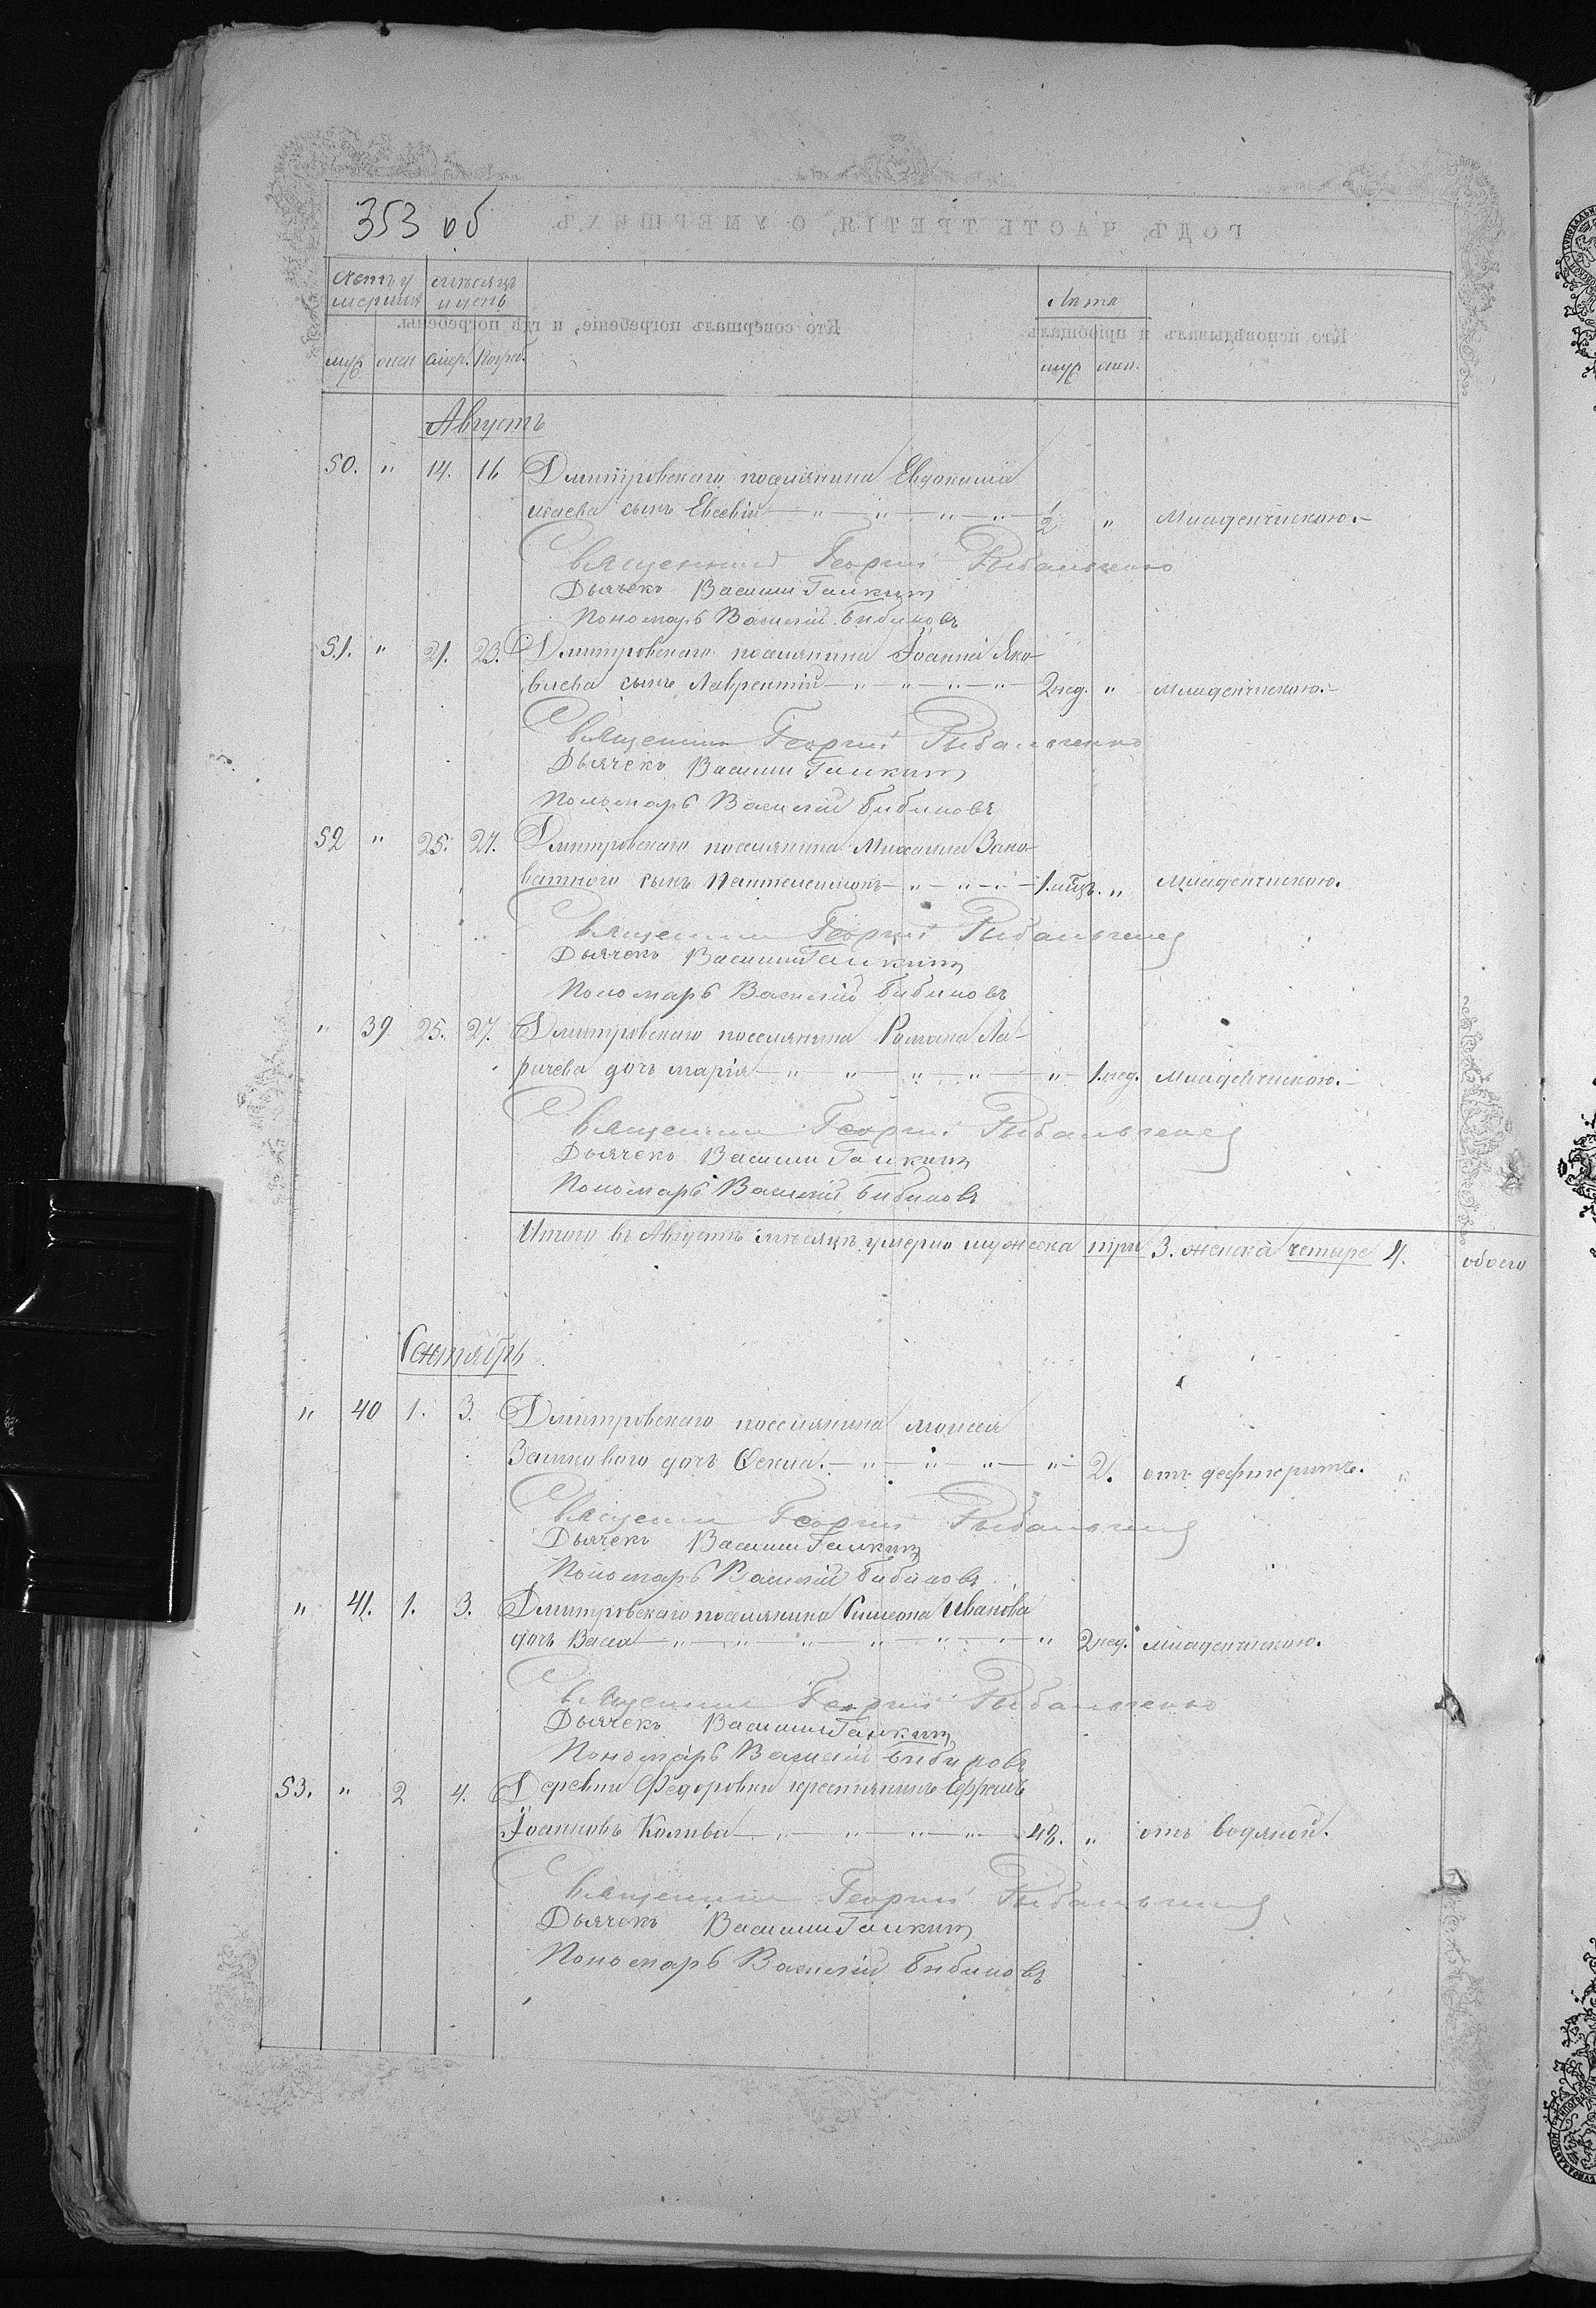 353 об
ГОДЪ, ЧАСТЬ ТРЕТІЯ, О УМЕРШИХЪ.
мѣсяцъ
и день
Лѣта
Кто совершалъ погребеніе, и гдѣ погребены.
Кто исповѣдывалъ и пріобщалъ.
муж жен умер. погреб.
муж жен.
Августъ
50. " 14. 16 Дмитровскаго поселянина Евдокима
сынъ Евсевій — " — " — " — " — 1/2 " Младенческою.-
Священникъ Георгій Рыбальченко
Дьячекъ Василій Галкинъ
Пономарь Василій Бибиковъ
51. " 21. 23. Дмитровскаго поселянина Іоанна Яко-
влева сынъ Лаврентій — " — " — " — " 2 нед. " младенческою.-
Священникъ Георгій Рыбальченко
Дьячекъ Василій Галкинъ
Пономарь Василій Бибиковъ
52 " 25. 27. Дмитровскаго поселянина Михаила Зано-
ватного сынъ Пантелеимонъ — " — " — " — 1. мѣц. " Младенческою.
Священникъ Георгій Рыбальченко
Дьячекъ Василій Галкинъ
Пономарь Василій Бибиковъ
" 39 25. 27. Дмитровскаго поселянина Романа Ла-
ричева дочь марія — " — " — " — " — " 1. нед. Младенческою.-
Священникъ Георгій Рыбальченко
Дьячекъ Василій Галкинъ
Пономарь Василій Бибиковъ
Итого въ Августѣ мѣсяцѣ умерло мужеска три 3. женска четыре 4. обоего
Сентябрь
" 40 1. 3. Дмитровскаго поселянина моисея
дочь Фекла. — " — " — " — " 2. отъ дефтерита.
Священникъ Георгій Рыбальченко
Дьячекъ Василій Галкинъ
Пономарь Василій Бибиковъ
" 41. 1. 3. Дмитровскаго поселянина Симеона Иванова
дочь Васса — " — " — " — " — " — " — " 2 нед. младенческою.
Священникъ Георгій Рыбальченко
Дьячекъ Василій Галкинъ
Пономарь Василій Бибиковъ
53. " 2 4. Деревни Федоровки крестьянинъ Ефремъ
Іоанновъ — " — " — " — " 48. " отъ водяной.
Священникъ Георгій Рыбальченко
Дьячекъ Василій Галкинъ
Пономарь Василій Бибиковъ